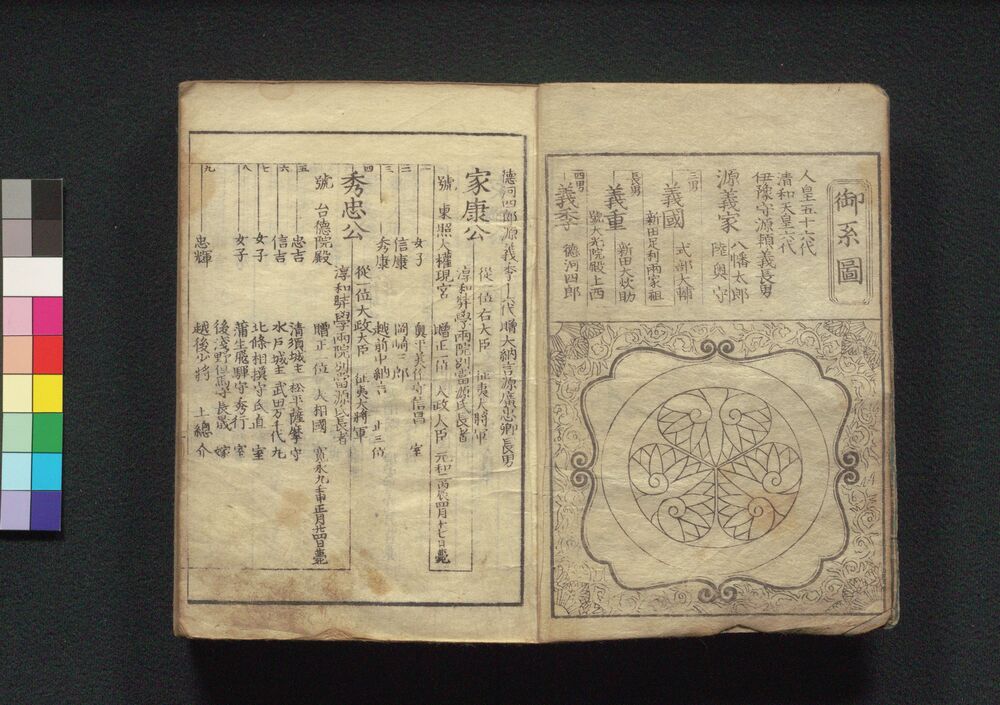 御系圖
人皇五十六代
清和天皇六代
伊豫守源頼義長男
源義家 八幡太郎 陸奥守
三男 義國 式部大輔
新田足利兩家祖
長男 義重 新田大炊助
號大光院殿上西
四男 義季 德河四郎
德河四郎源義季十六代 贈大納言源廣忠卿長男
家康公 從一位右大臣 征夷大將軍
淳和弉學兩院別當源氏長者
號 東照大權現宮 贈正一位大政大臣 元和二丙辰四月十七日薨
一 女子 奥平美作守信昌 室
二 信康 岡崎三郎
三 秀康 越前中納言 正三位
四 秀忠公 從一位大政大臣 征夷大將軍
淳和弉學兩院別當源氏長者
號 台德院殿 贈正一位大相國 寛永九壬申正月廿四日薨
五 忠吉 清須城主 松平薩摩守
六 信吉 水戸城主 武田万千代丸
七 女子 北條相摸守氏直 室
八 女子 蒲生飛驒守秀行 室
後淺野但馬守長晟 嫁
九 忠輝 越後少將 上總介